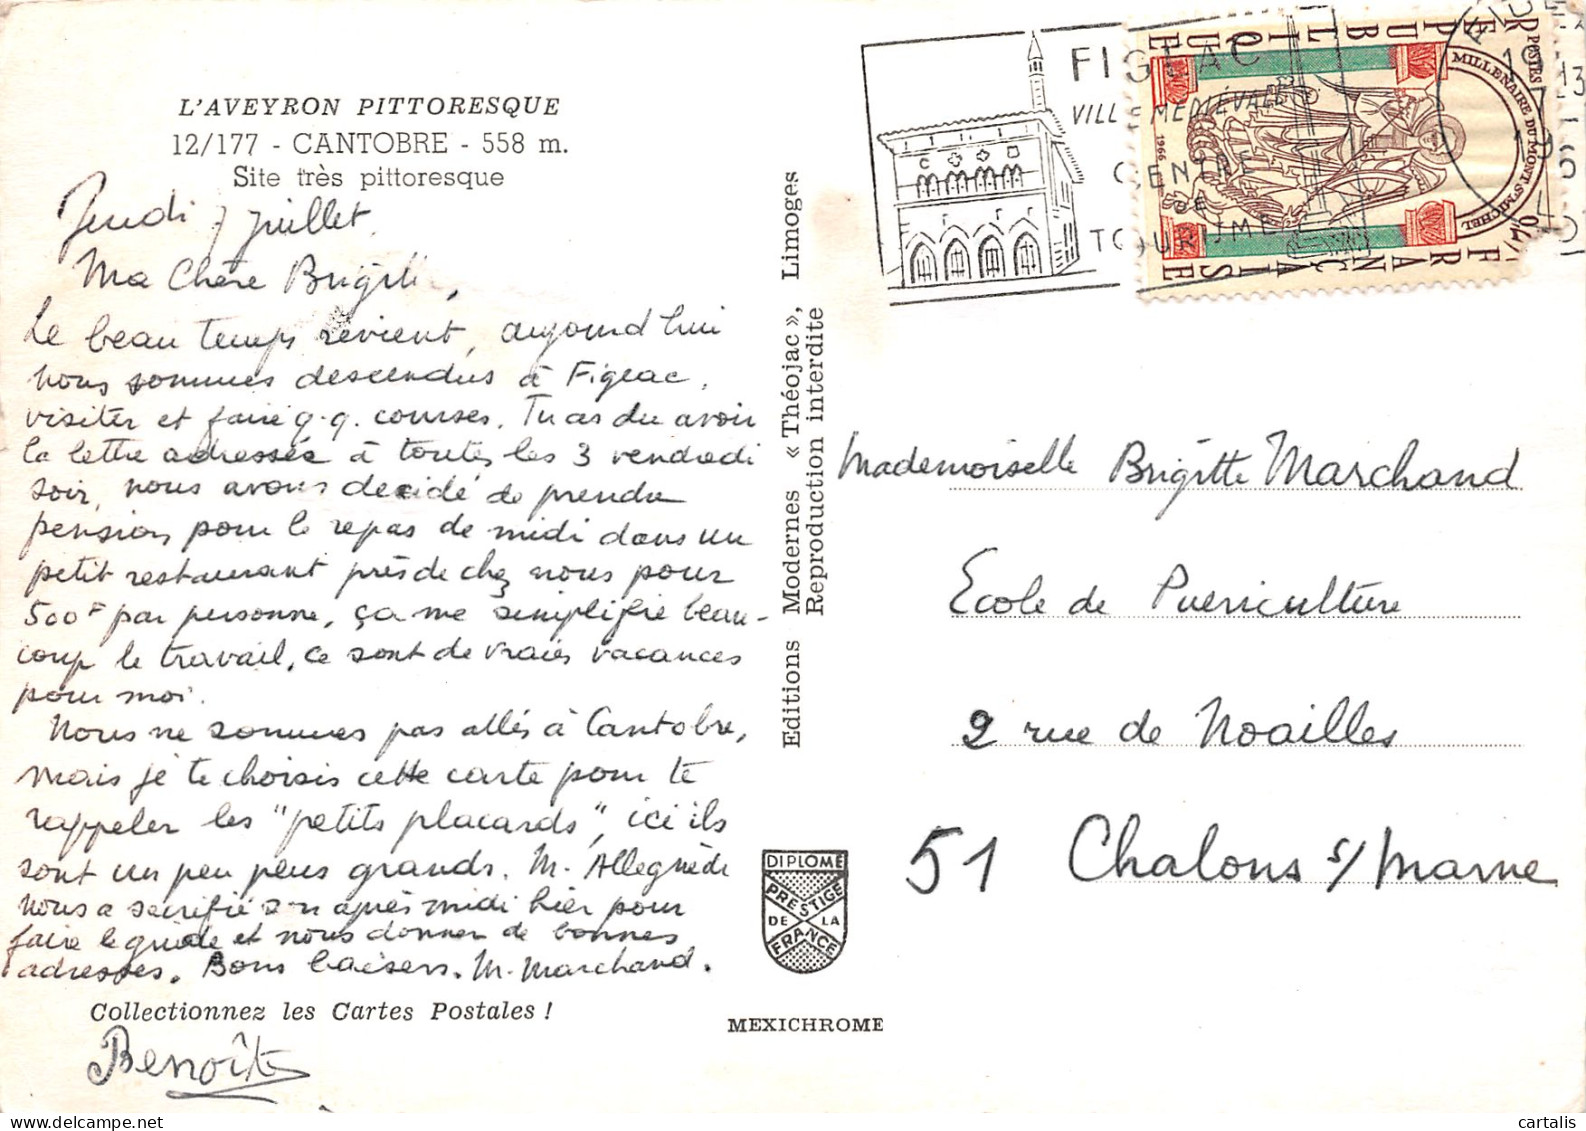 L'AVEYRON PITTORESQUE
12/177 - CANTOBRE - 558 m.
Site très pittoresque
Jeudi 7 Juillet.
Ma Chère Brigitte,
Le beau temps revient, aujourd'hui
nous sommes descendus à Figeac,
visiter et faire q.q. courses. Tu as du avoir
la lettre adressée à toutes les 3 vendredi
soir, nous avons decidé de prendre
pension pour le repas de midi dans un
petit restaurant près de chez nous pour
500F par personne, ça me simplifie beau-
coup le travail, ce sont de vraies vacances
pour moi.
Nous ne sommes pas allés à Cantobre,
mais je te choisis cette carte pour te
rappeler les "petits placards", ici ils
sont un peu plus grands. M. Allegnède
nous a sacrifié son après midi hier pour
faire le guide et nous donner de bonnes
adresses. Bons baisers. M. Marchand.
Collectionnez les Cartes Postales !
Benoîte
Editions Modernes « Théojac », Limoges
Reproduction interdite
DIPLOME
PRESTIGE
DE LA
FRANCE
MEXICHROME
FIGEAC
VILLE MEDIÉVALE
CENTRE
DE
TOURISME
REPUBLIQUE
FRANÇAISE
POSTES
MILLENAIRE DU MONT-ST-MICHEL
1966
Mademoiselle Brigitte Marchand
Ecole de Puericulture
2 rue de Noailles
51 Chalons s/ Marne
cartalis